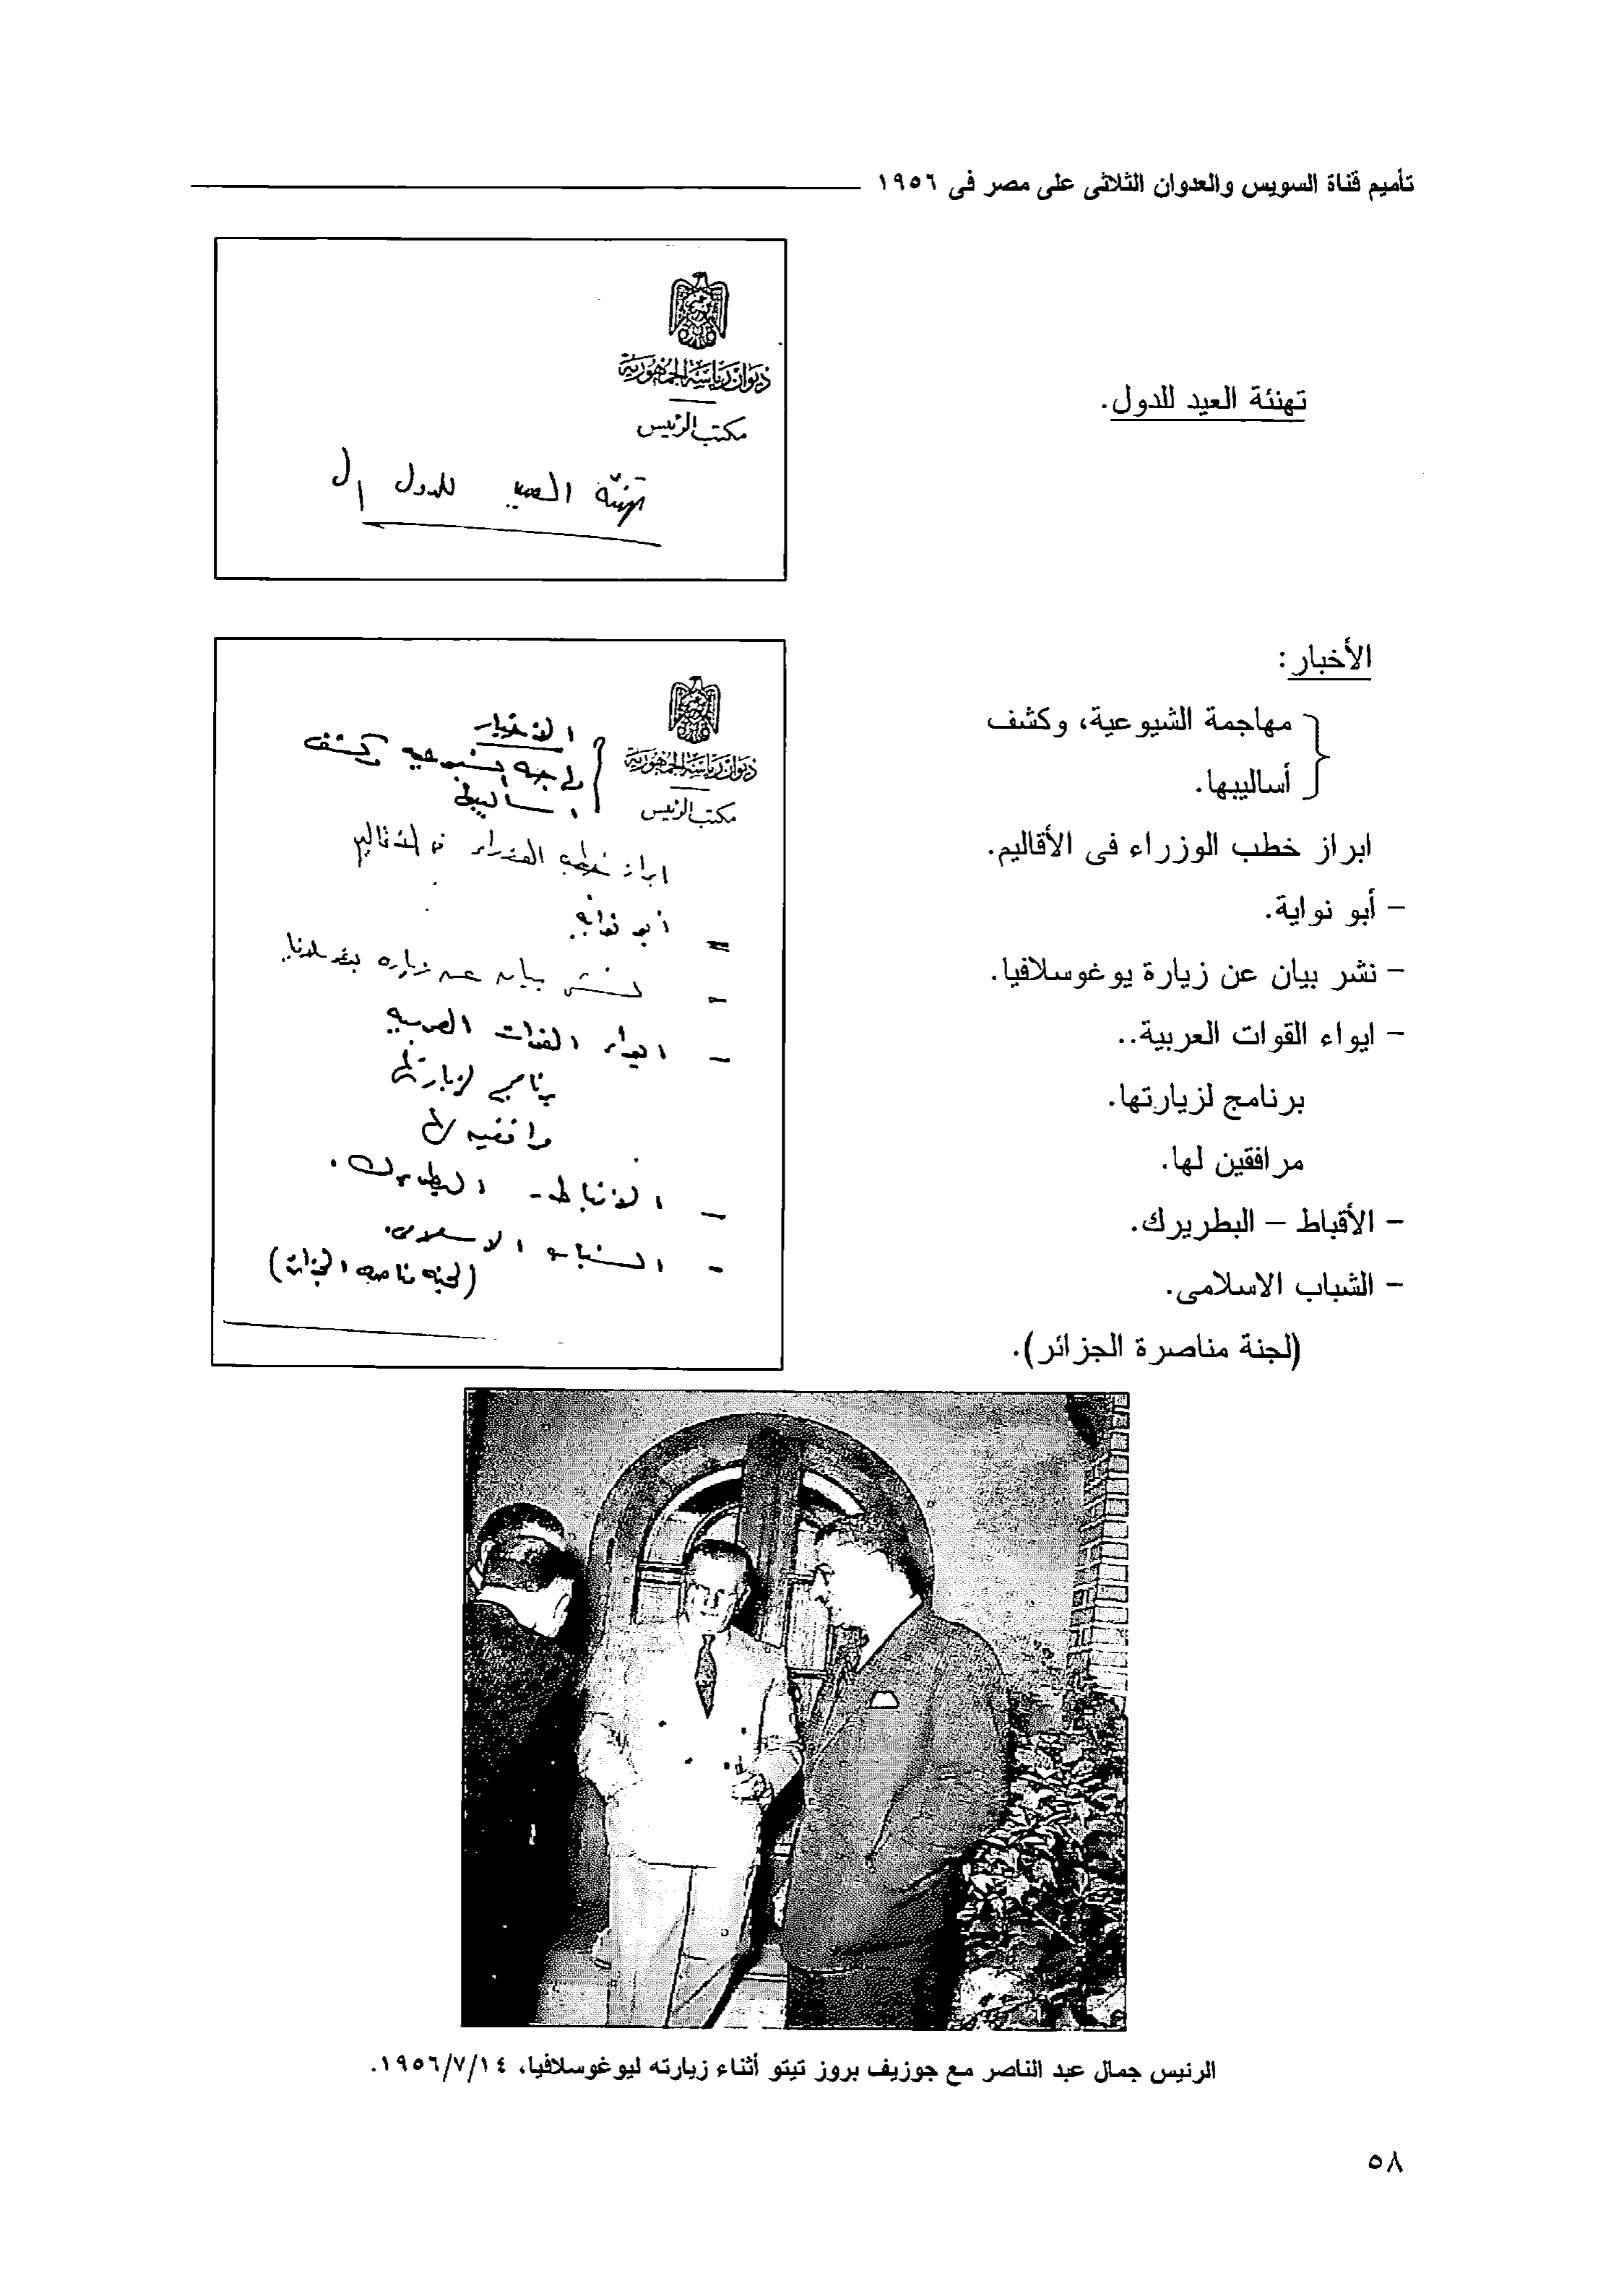 تأميم قناة السويس والعدوان الثلاثى على مصر فى ١٩٥٦
ديوان رياسة الجمهورية
مكتب الرئيس
تهنئة العيد للدول ال
تهنئة العيد للدول.
الأخبار:
مهاجمة الشيوعية، وكشف
أساليبها.
ابراز خطب الوزراء فى الأقاليم.
- أبو نواية.
- نشر بيان عن زيارة يوغوسلافيا.
- ايواء القوات العربية..
برنامج لزيارتها.
مرافقين لها.
- الأقباط – البطريرك.
- الشباب الاسلامى.
(لجنة مناصرة الجزائر).
ديوان رياسة الجمهورية
مكتب الرئيس
الأخبار
مهاجمة الشيوعية وكشف
أساليبها
ابراز خطب الوزراء فى الأقاليم
= أبو نواية.
- نشر بيان عن زيارة يوغوسلافيا
- ايواء القوات العربية
برنامج لزيارتها
مرافقين لها
- الأقباط - البطريرك.
- الشباب الاسلامى.
(لجنة مناصرة الجزائر)
الرئيس جمال عبد الناصر مع جوزيف بروز تيتو أثناء زيارته ليوغوسلافيا، ١٤/٧/١٩٥٦.
٥٨